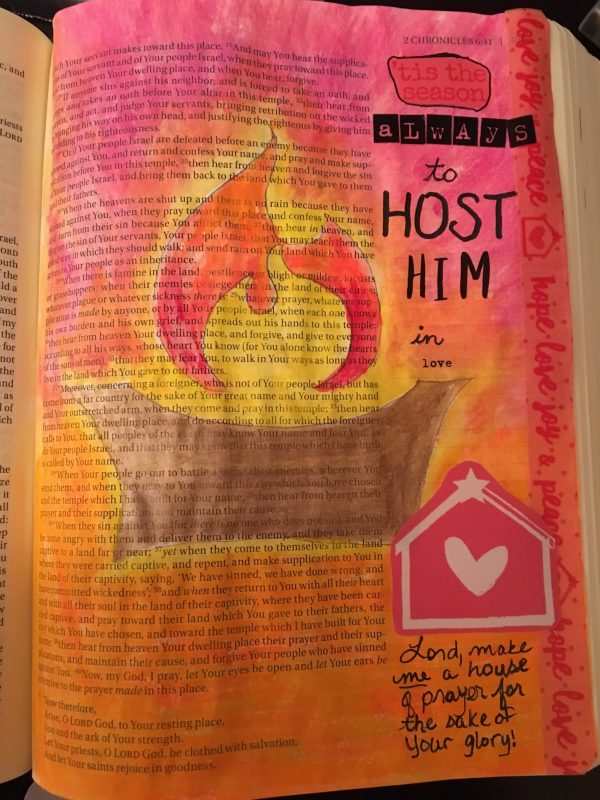 2 CHRONICLES 6:41
ch Your servant makes toward this place. 21And may You hear the supplica-
s of Your servant and of Your people Israel, when they pray toward this place.
r from heaven Your dwelling place, and when You hear, forgive.
22"If anyone sins against his neighbor, and is forced to take an oath, and
and takes an oath before Your altar in this temple, 23then hear from
and act, and judge Your servants, bringing retribution on the wicked
his way on his own head, and justifying the righteous by giving him
to his righteousness.
Your people Israel are defeated before an enemy because they have
against You, and return and confess Your name, and pray and make sup-
before You in this temple, 25then hear from heaven and forgive the sin
Your people Israel, and bring them back to the land which You gave to them
their fathers.
26"When the heavens are shut up and there is no rain because they have
against You, when they pray toward this place and confess Your name,
and turn from their sin because You afflict them, 27then hear in heaven, and
forgive the sin of Your servants, Your people Israel, that You may teach them
good way in which they should walk; and send rain on Your land which You have
given to Your people as an inheritance.
28"When there is famine in the land, pestilence or blight or mildew, locusts
or grasshoppers; when their enemies besiege them in the land of their cities;
whatever plague or whatever sickness there is; 29whatever prayer, whatever sup-
plication is made by anyone, or by all Your people Israel, when each one knows
his own burden and his own grief, and spreads out his hands to this temple:
30then hear from heaven Your dwelling place, and forgive, and give to everyone
according to all his ways, whose heart You know (for You alone know the hearts
of the sons of men), 31that they may fear You, to walk in Your ways as long as they
live in the land which You gave to our fathers.
32"Moreover, concerning a foreigner, who is not of Your people Israel, but has
come from a far country for the sake of Your great name and Your mighty hand
and Your outstretched arm, when they come and pray in this temple; 33then hear
from heaven Your dwelling place, and do according to all for which the foreigner
calls to You, that all peoples of the earth may know Your name and fear You, as
do Your people Israel, and that they may know that this temple which I have built
is called by Your name.
34"When Your people go out to battle against their enemies, wherever You
send them, and when they pray to You toward this city which You have chosen
and the temple which I have built for Your name, 35then hear from heaven their
prayer and their supplication, and maintain their cause.
36"When they sin against You (for there is no one who does not sin), and You
become angry with them and deliver them to the enemy, and they take them
captive to a land far or near; 37yet when they come to themselves in the land
where they were carried captive, and repent, and make supplication to You in
the land of their captivity, saying, 'We have sinned, we have done wrong, and
have committed wickedness'; 38and when they return to You with all their heart
and with all their soul in the land of their captivity, where they have been car-
ried captive, and pray toward their land which You gave to their fathers, the
city which You have chosen, and toward the temple which I have built for Your
name: 39then hear from heaven Your dwelling place their prayer and their sup-
plications, and maintain their cause, and forgive Your people who have sinned
against You. 40Now, my God, I pray, let Your eyes be open and let Your ears be
attentive to the prayer made in this place.
"Now therefore,
Arise, O LORD God, to Your resting place,
You and the ark of Your strength.
Let Your priests, O LORD God, be clothed with salvation,
And let Your saints rejoice in goodness.
'tis the
season
ALWAYS
to
HOST
HIM
in
love
Lord, make
me a house
of prayer for
the sake of
Your glory!
love joy peace
hope love joy & peace
hope love j